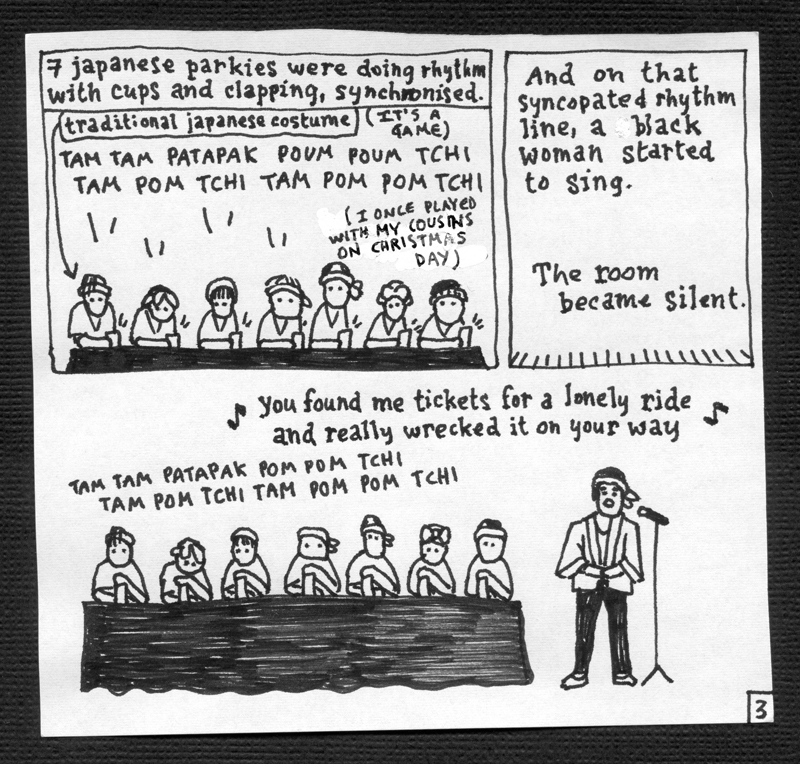 7 japanese parkies were doing rhythm
with cups and clapping, synchronised.
traditional japanese costume
(IT'S A
GAME)
TAM TAM PATAPAK POUM POUM TCHI
TAM POM TCHI TAM POM POM TCHI
(I ONCE PLAYED
WITH MY COUSINS
ON CHRISTMAS
DAY)
And on that
syncopated rhythm
line, a black
woman started
to sing.
The room
became silent.
♪ you found me tickets for a lonely ride ♪
and really wrecked it on your way
TAM TAM PATAPAK POM POM TCHI
TAM POM TCHI TAM POM POM TCHI
3